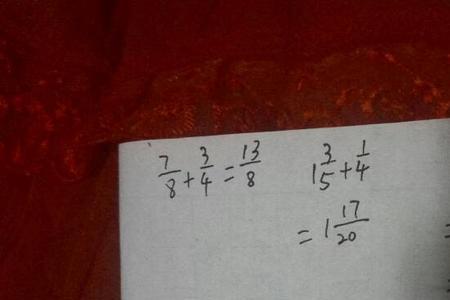 7/8 + 3/4 = 13/8
1 3/5 + 1/4
= 1 17/20